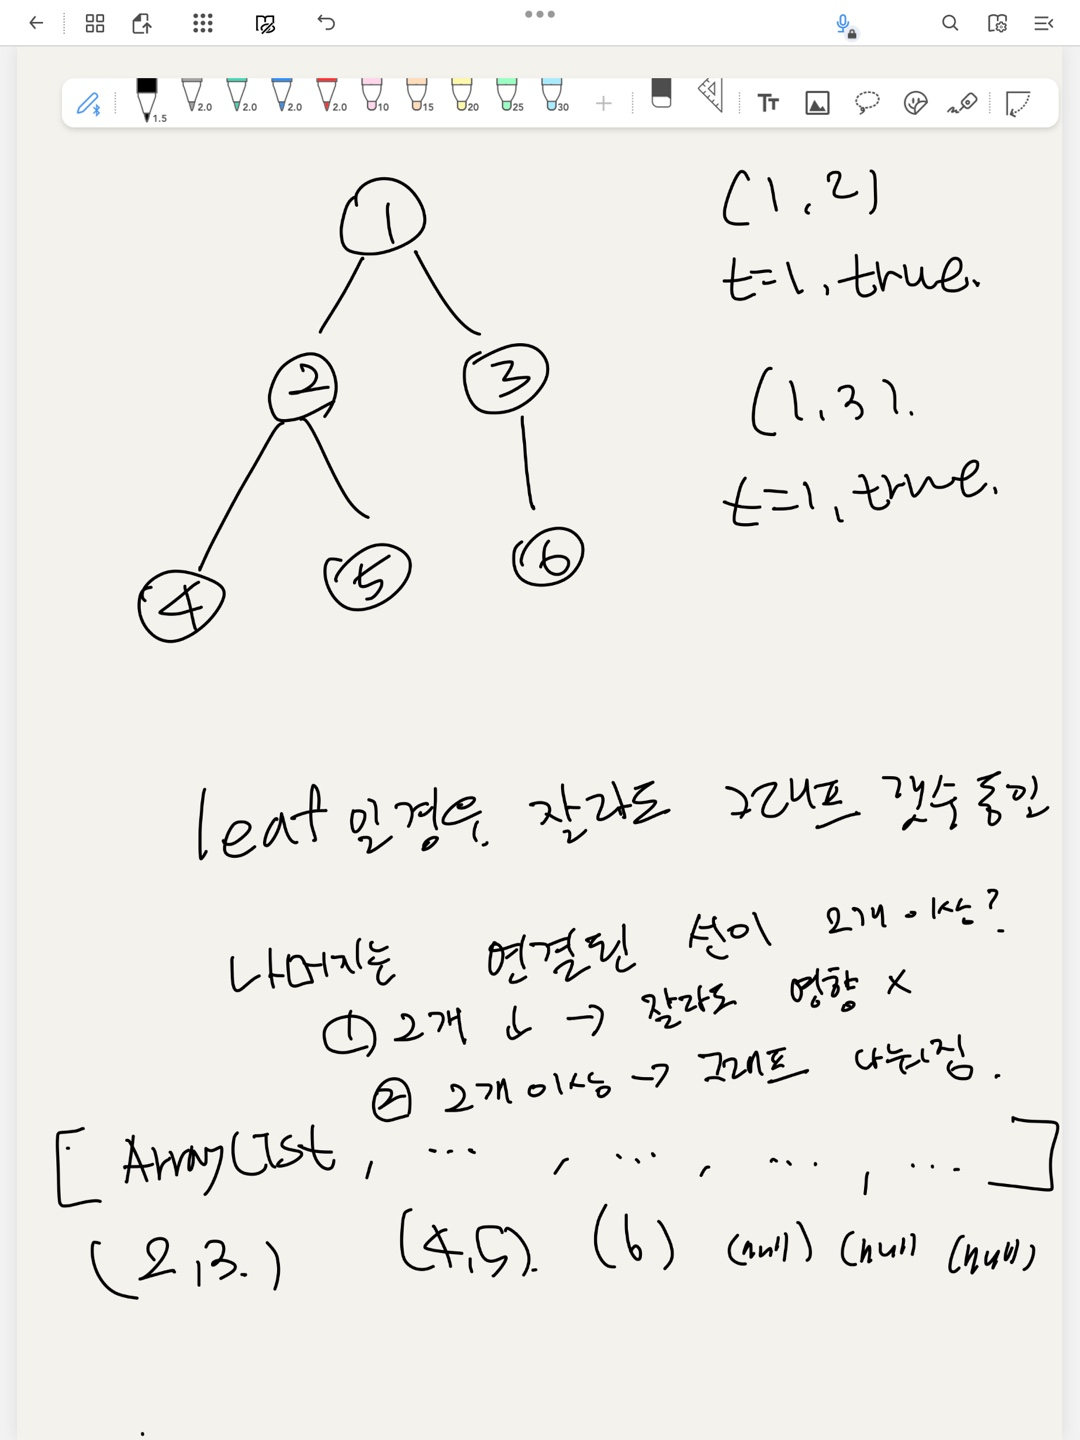 1.5 2.0 2.0 2.0 2.0 10 15 20 25 30 Tт
1
(1,2)
t=1, true.
2 3
(1,3).
t=1, true.
4 5 6
leaf일경우, 잘라도 그래프 갯수 동일
나머지는 연결된 선이 2개 이상?
① 2개 ↓ → 잘라도 영향 X
② 2개 이상 → 그래프 나눠짐.
[ ArrayList, ..., ..., ..., ... ]
(2,3.) (4,5). (6) (null) (null (null)